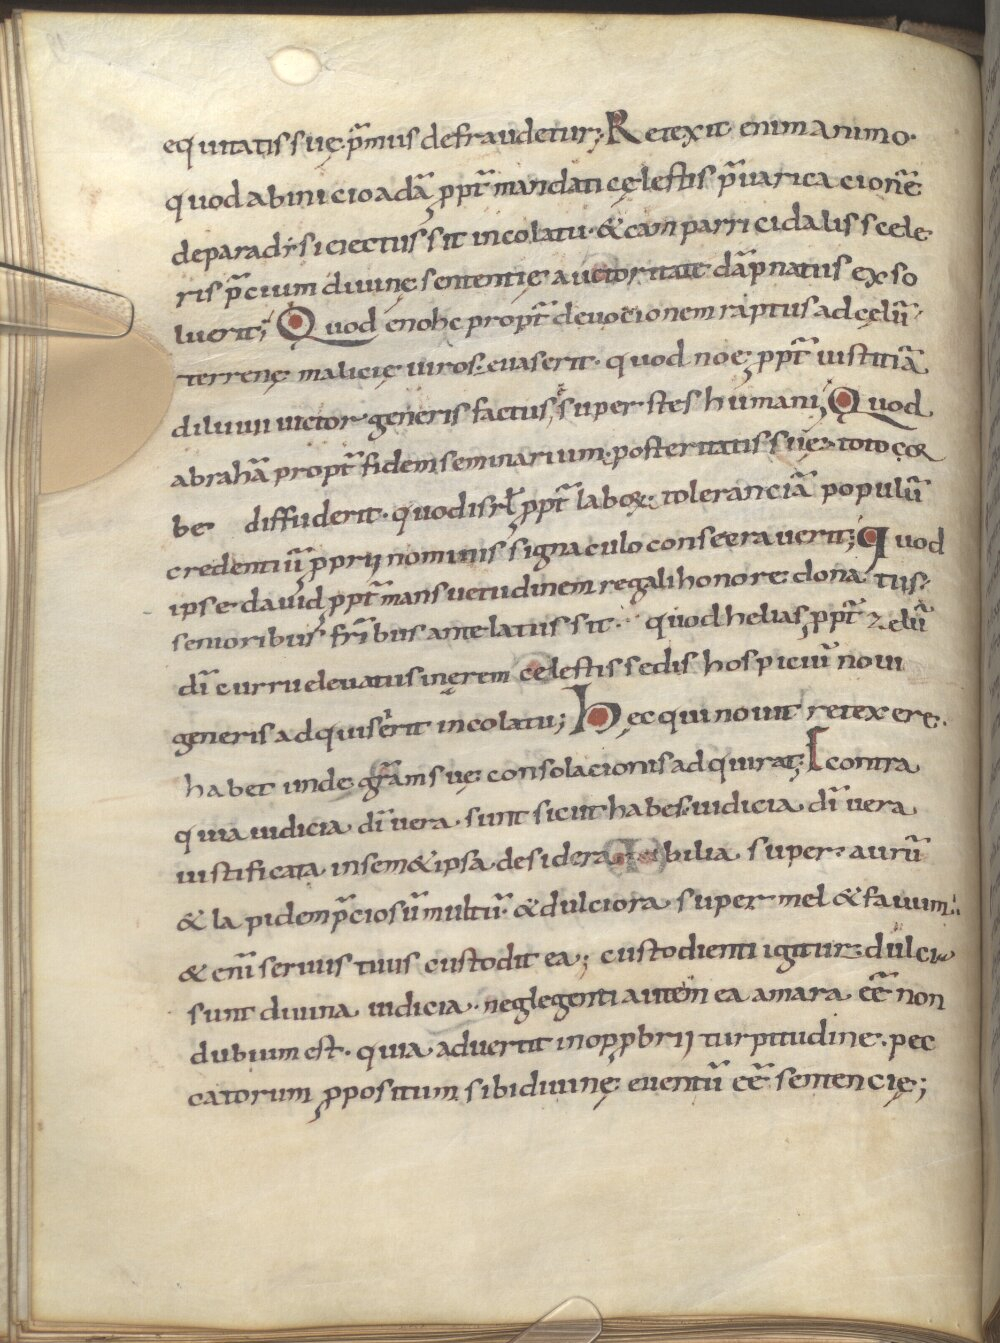 equitatis suę p̄mus defraudetur; Retexit enim animo·
quod ab inicio adā ꝓpt̄ mandati cęlestis p̄uaricacionē
de paradỉsi eiectus sit incolatu· & cain parricidalis scele
ris p̄cium diuinę sententię auctoritate dāpnatus exso
luerit; Quod enohc propt̄ deuocionem raptus ad cęlū·
terrenę malicię uiros· euaserit· quod noe ꝓpt̄ iustitiā
diluuii uictor generis factus superstes humani; Quod
abrahā propt̄ fidem seminarium posteritatis suę toto cor
be diffuderit· quod isrł ꝓpt̄ labor toleranciā populū
credentiū ꝓprii nominis signaculo consecrauerit; quod
ipse dauid ꝓpt̄ mansuetudinem regali honore donatus·
senioribus fr̄ibus antelatus sit· quod helias ꝓpt̄ zelū
dī curru eleuatus in ęrem celestis sedis hospiciū noui
generis adquisierit incolatu; hęc qui nouit retexere·
habet unde gr̄am suę consolacionis adquirat; E contra
quia iudicia dī vera· sunt sicut habes· iudicia dī vera
iustificata in sem&ipsa desiderabilia super aurū
& lapidem p̄ciosū multū· & dulciora super mel & fauum·
& enī seruus tuus custodit ea; custodienti igitur dulci
sunt diuina iudicia· neglegenti autem ea amara eē non
dubium est· quia aduertit in opprobrii turpitudine· pec
catorum ꝓpositum sibi diuinę euentū eē sentencię;